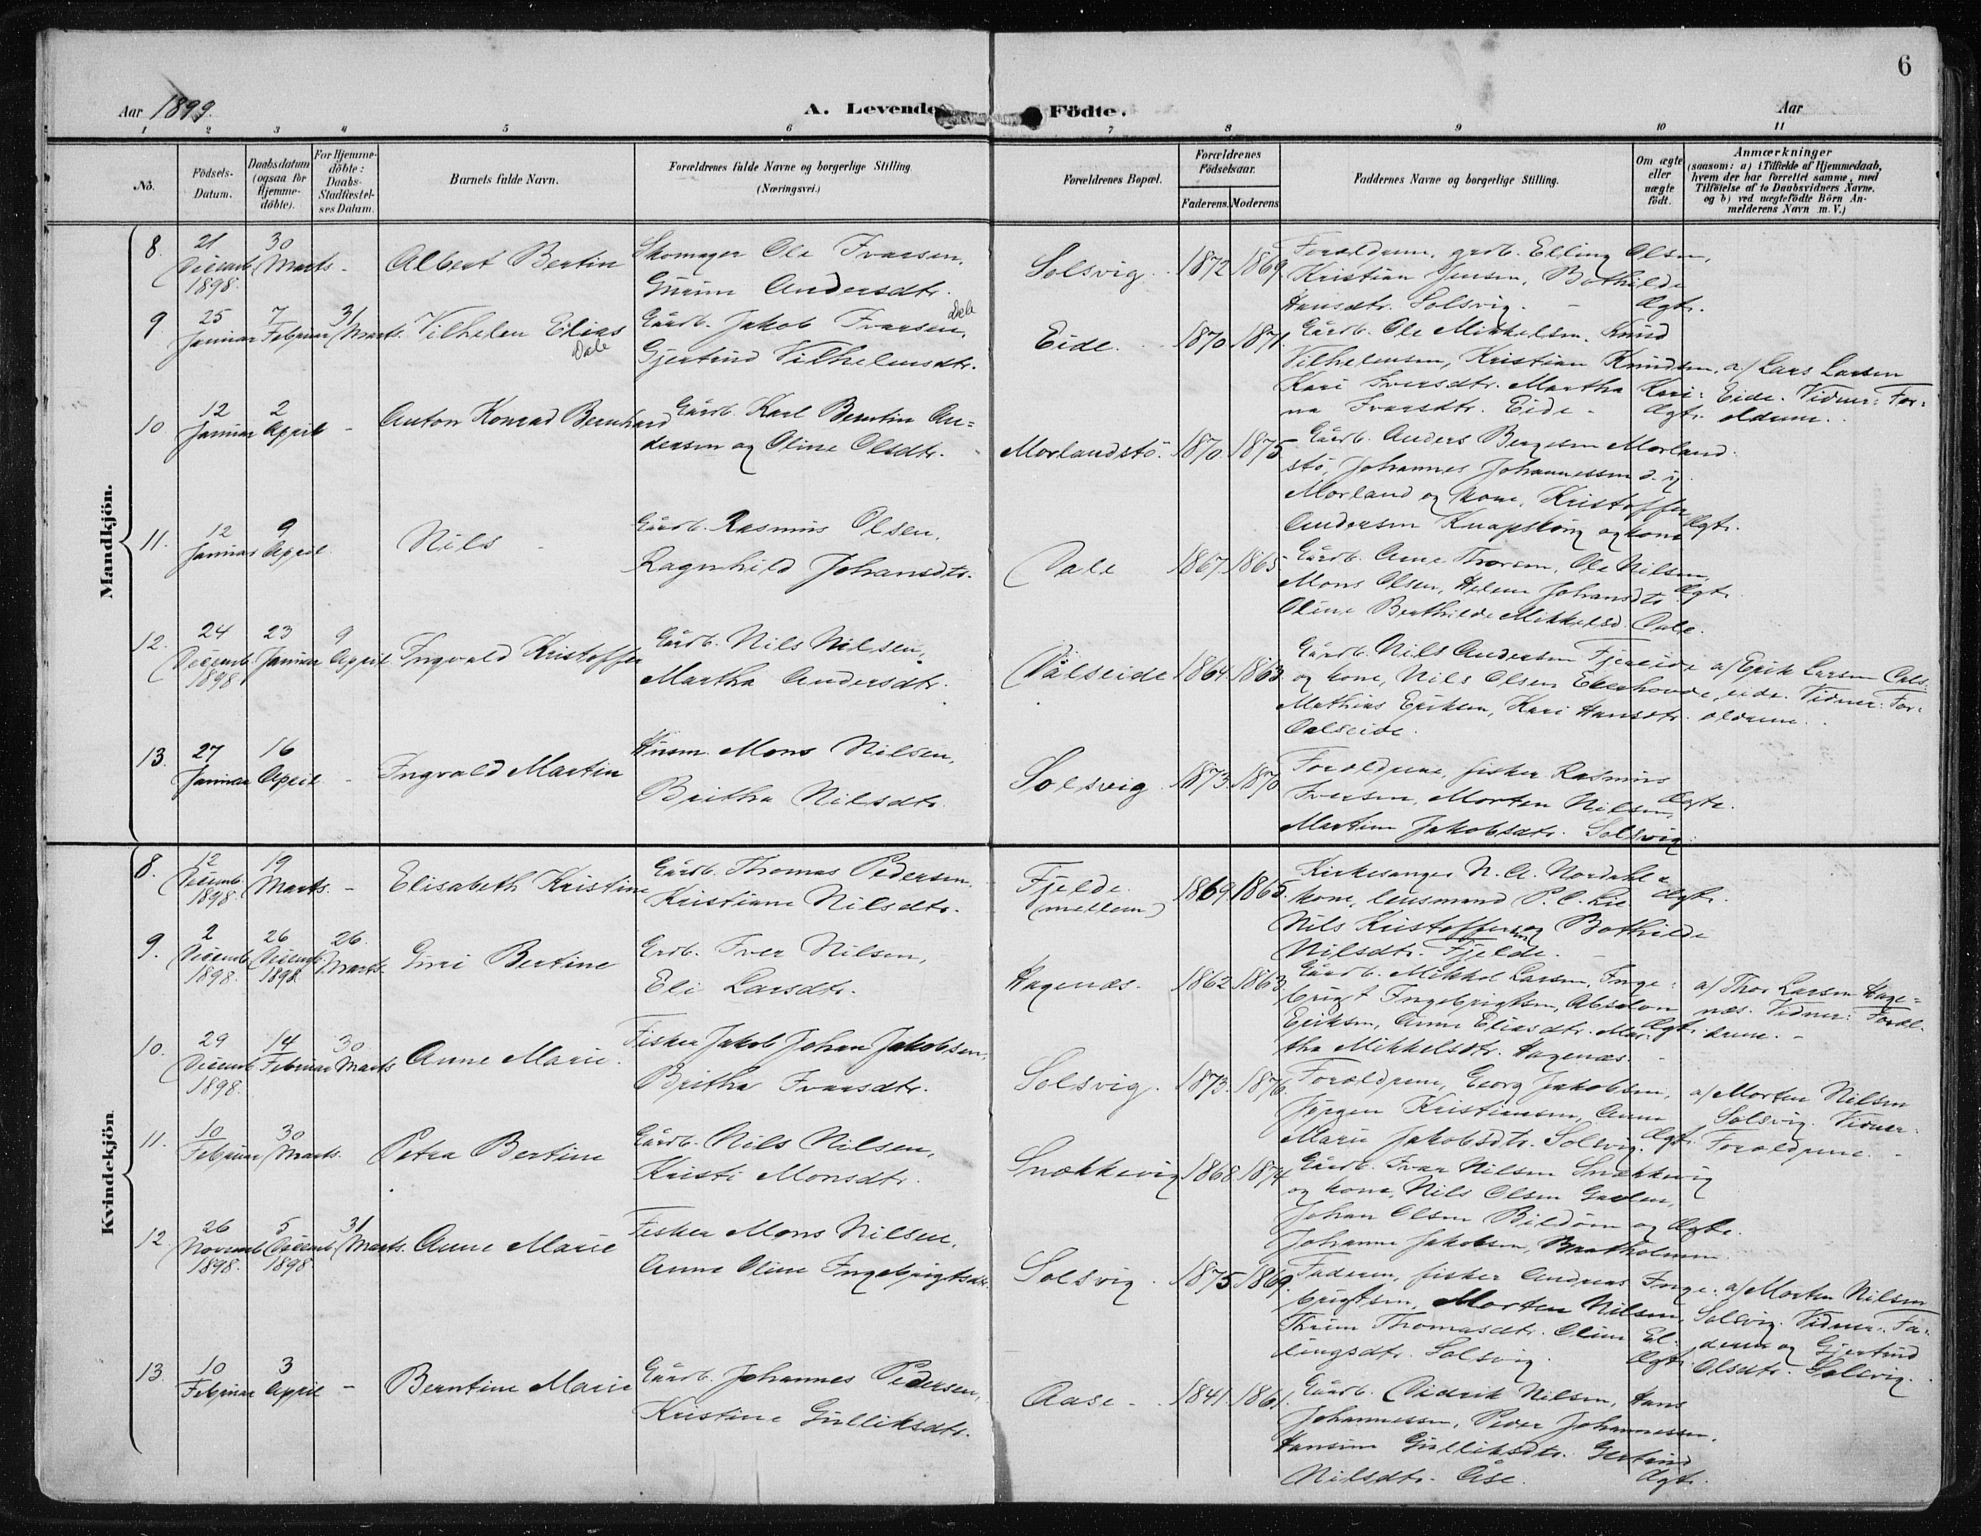 6
Aar 1899.
A. Levende Födte.
Aar
1 2 3 4 5 6 7 8 9 10 11
No.
Födsels-Datum.
Daabsdatum (ogsaa for Hjemme-döbte).
For Hjemme-döbte: Daabs-Stadfæstel-ses Datum.
Barnets fulde Navn.
Forældrenes fulde Navne og borgerlige Stilling.
(Næringsvei.)
Forældrenes Bopæl.
Forældrenes Födselsaar.
Faderens. Moderens
Faddernes Navne og borgerlige Stilling.
Om ægte eller uægte födt.
Anmærkninger
(saasom: a) i Tilfælde af Hjemmedaab,
hvem der har forrettet samme, med
Tilföielse af to Daabsvidners Navne,
og b) ved uægtefödte Börn An-
melderens Navn m. V.)
Mandkjön.
8. 21 Decemb. 1898. 30 Marts - Albert Bertin
Skomager Ole Ivarsen,
Gurine Andersdtr.
Solsvig. 1872 1869
Forældrene, grdb. Elling Olsen,
Kristian Jensen, Bothilde
Hansdtr. Solsvig. - Ægte.
9 25 Januar 7 Februar 31 Marts. Vilhelm Elias Dale
Gårdb. Jakob Ivarsen, Dale
Gjertrud Vilhelmsdtr.
Eide. 1870 1871.
Gårdb. Ole Mikkelsen, Knud
Vilhelmsen, Kristian Knudsen, a/ Lars Larsen
Kari Iversdtr. Martha Kari- Eide. Vidner: For-
na Ivarsdtr. Eide - Ægte. ældrene.
10. 12 Januar 2 April - Anton Konrad Bernhard
Gårdb. Karl Berntin An=
dersen og Oline Olsdtr.
Morlandstö. 1870. 1875
Gårdb. Anders Børgesen Morland
stö, Johannes Johannessen
Morland og kone, Kristoffer
Andersen Knapskog og kone Ægte.
11. 12 Januar 9 April Nils -
Gårdb. Rasmus Olsen,
Ragnhild Johansdtr.
Dale 1867. 1865
Gårdb. Arne Thorsen, Ole Nilsen,
Mons Olsen, Helene Johansdtr. Ægte.
Oline Berthilde Mikkelsd. Dale.
12. 24 Decemb. 1898 23 Januar 9 April Ingvald Kristoffer
Gårdb. Nils Nilsen,
Martha Andersdtr.
Dalseide 1864. 1863.
Gårdb. Nils Andersen Fjereide a/ Erik Larsen Dals-
og kone, Nils Olsen Ekerhovde, eide. Vidner: For-
Mathias Eriksen, Kari Hansdtr. ældrene.
Dalseide.
13. 27 Januar 16 April - Ingvald Martin
Husm. Mons Nilsen,
Britha Nilsdtr.
Solsvig 1873. 1870
Forældrene, fisker Rasmus
Iversen, Morten Nilsen, Ægte.
Martine Jakobsdtr. Solsvig.
Kvindekjön.
8. 12 Decemb. 1898. 19 Marts. - Elisabeth Kristine
Gårdb. Thomas Pedersen
Kristiane Nilsdtr.
Fjelde (mellem) 1869 1865.
Kirkesanger N. A. Nordahl &
kone, lensmand P. C. Lie Ægte.
Nils Kristoffersen og Bothilde
Nilsdtr. Fjelde. -
9. 2 Decemb. 1898. 26 Decemb. 1898 26. Marts. Guri Bertine
Grdb. Iver Nilsen,
Eli Larsdtr.
Hagenæs. 1862 1863.
Gårdb. Mikkel Larsen, Inge- a/ Thor Larsen Hage-
brigt Ingebrigtsen, Absalon næs. Vidner: Foræl-
Eriksen, Anne Eliasdtr. Mar- Ægte. drene. -
tha Mikkelsdtr. Hagenæs.
10. 29 Decemb. 1898. 14 Februar 30 Marts Anne Marie.
Fisker Jakob Johan Jakobsen,
Britha Ivarsdtr.
Solsvig. 1873. 1876.
Forældrene, Georg Jakobsen, a/ Morten Nilsen
Jørgen Kristiansen, Anne Solsvig. Vidner:
Marie Jakobsdtr. Solsvig. Ægte. Forældrene. -
11. 10 Februar 30 Marts. Petra Bertine
Gårdb. Nils Nilsen,
Kristi Monsdtr.
Snækkevig 1868. 1874
Gårdb. Ivar Nilsen Snækkevig
og kone, Nils Olsen
Johan Olsen Bildöen og Ægte.
Johanne Jakobsen,
12. 26 Novemb. 1898. 5 Decemb. 1898. 31 Marts. Anne Marie
Fisker Mons Nilsen,
Anne Oline Ingebrigtsdtr.
Solsvig. 1875 1869.
Faderen, fisker Andreas Inge- a/ Morten Nilsen
brigtsen, Morten Nilsen, Solsvig. Vidner: Fa-
Thrine Thomasdtr. Oline El- deren og Gjertrud
lingsdtr. Solsvig. Ægte. Olsdtr. Solsvig.
13. 10 Februar 3 April - Berntine Marie
Gårdb. Johannes Pedersen,
Kristine Gulliksdtr.
Aase. 1841. 1861.
Gårdb. Didrik Nilsen, Hans
Johannessen, Peder Johannessen.
Hansine Gulliksdtr. Gertrud
Nilsdtr. Åse. Ægte.